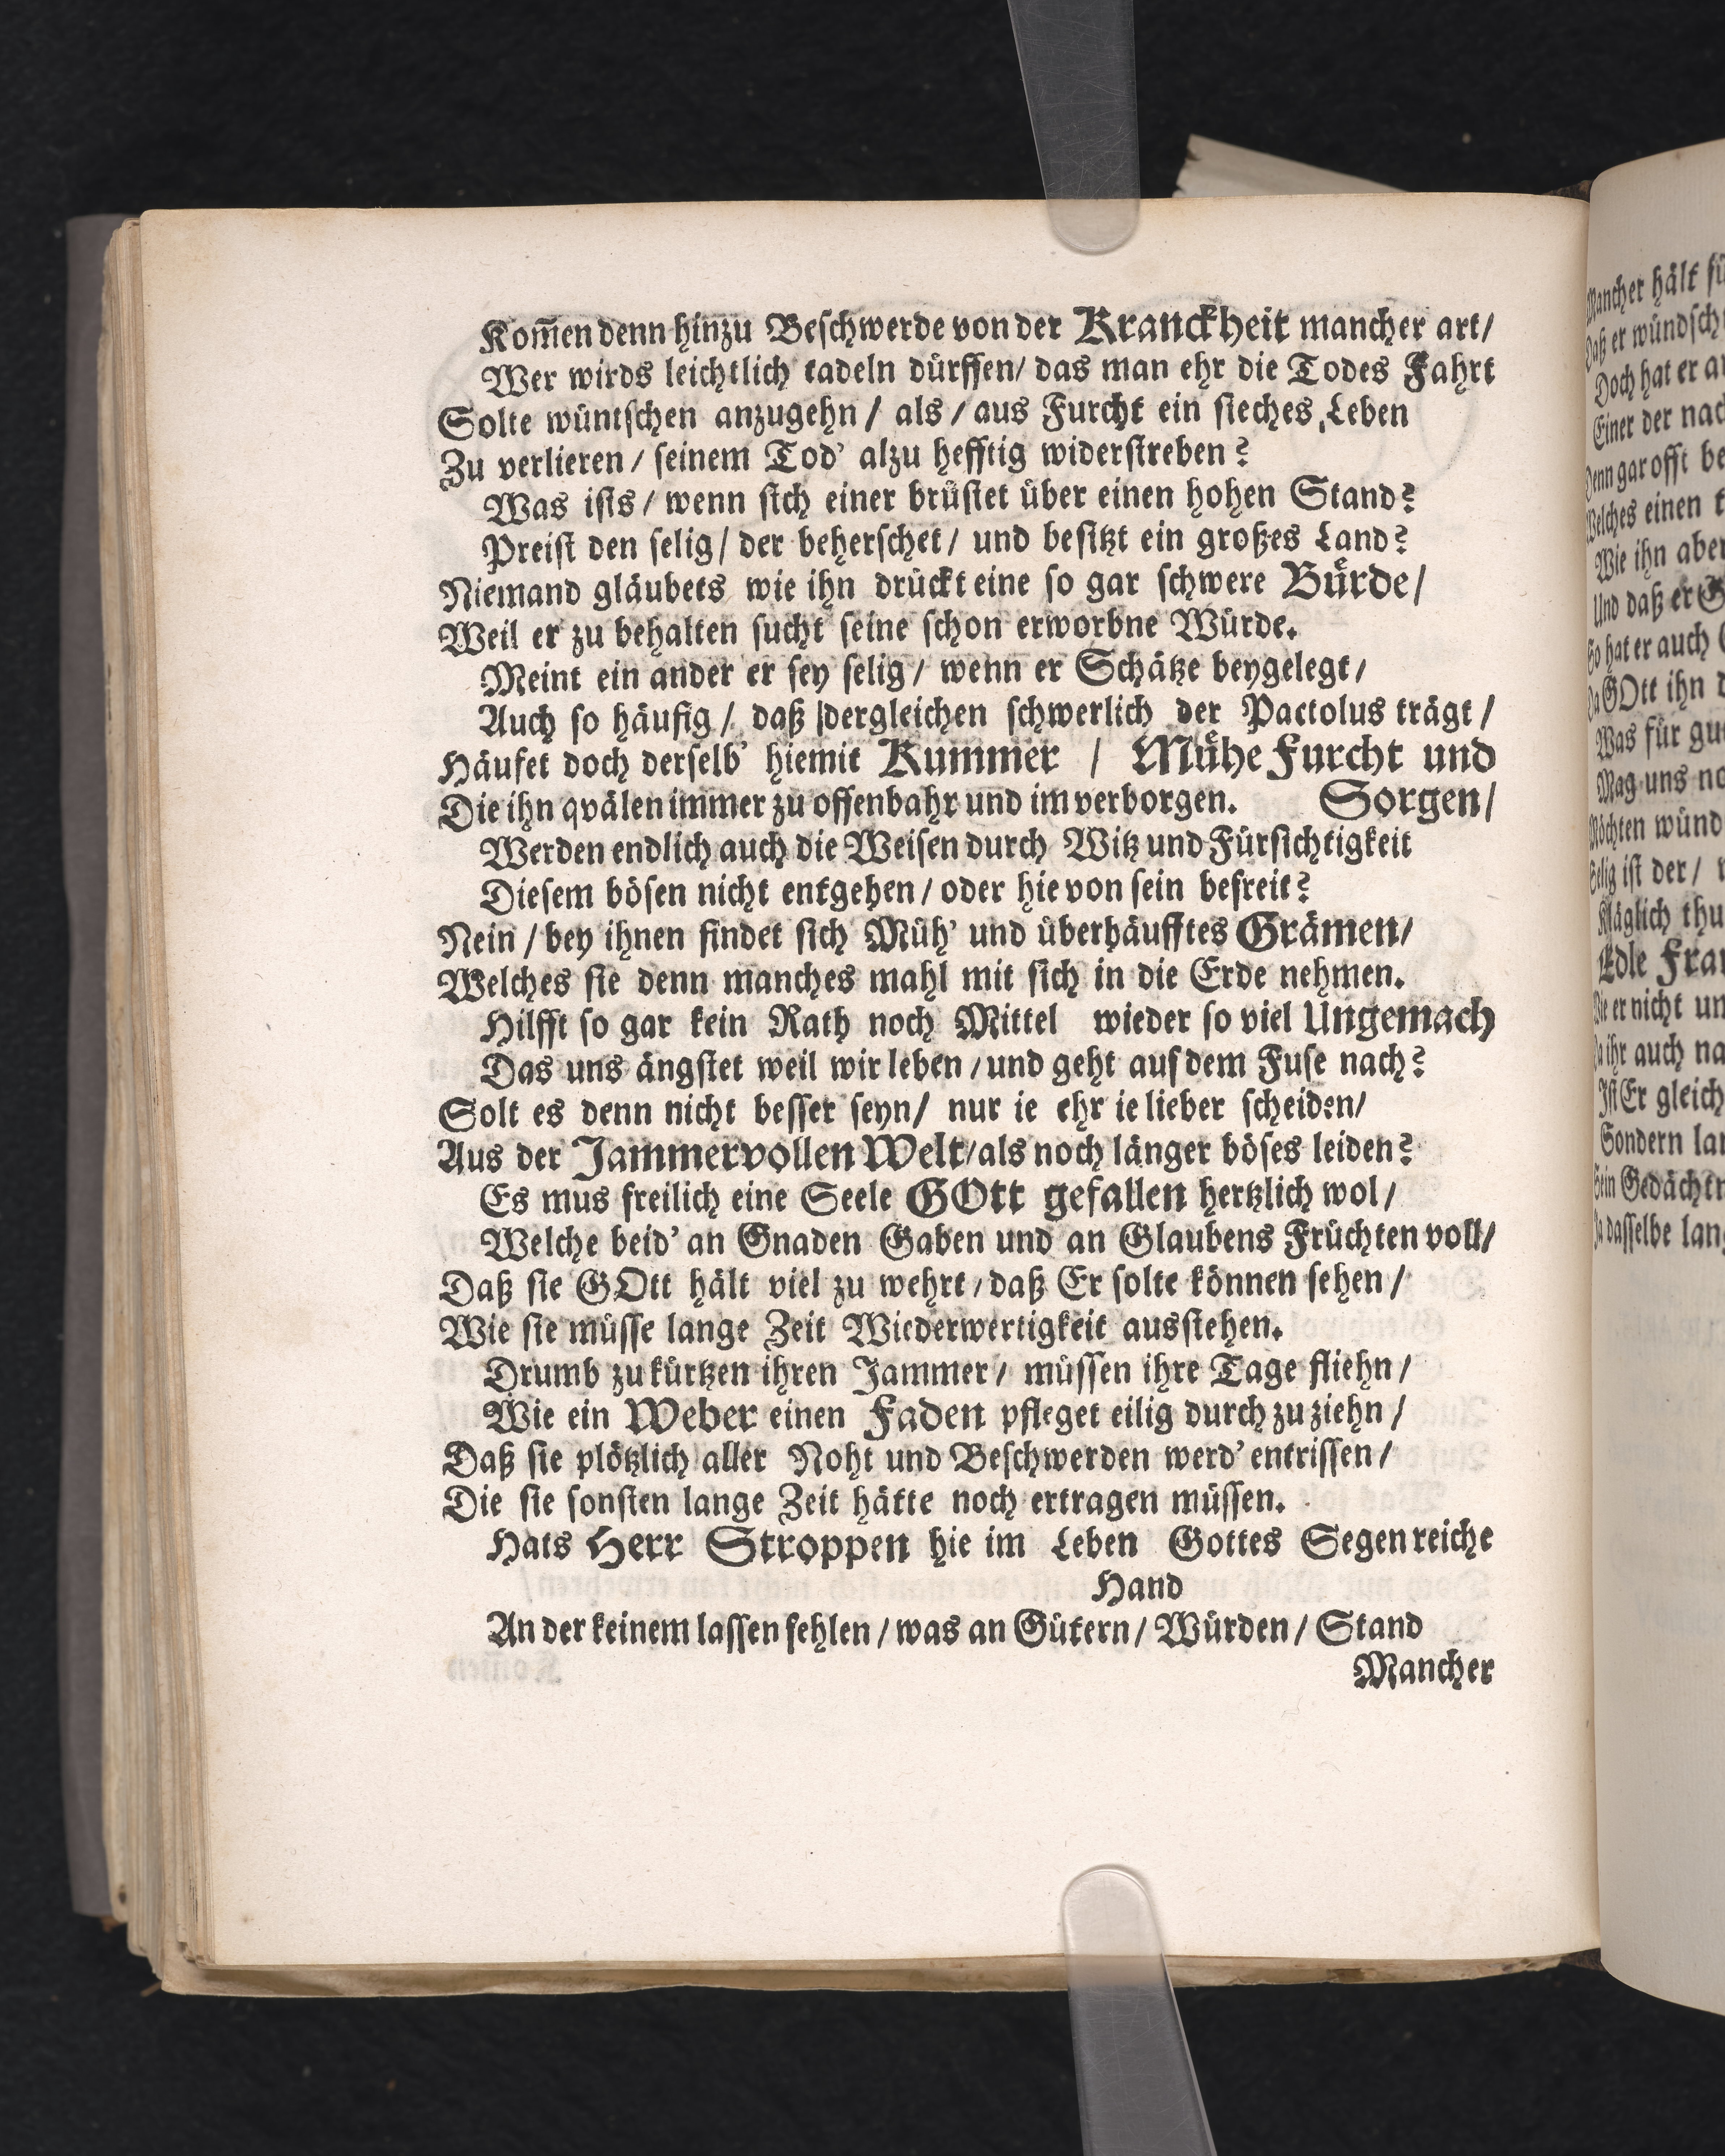 Kom̃en denn hinzu Beſchwerde von der Kranckheit mancher art/
Wer wirds leichtlich tadeln dürffen/ das man ehr die Todes Fahrt
Solte wüntſchen anzugehn / als / aus Furcht ein ſieches Leben
Zu verlieren / ſeinem Tod' alzu hefftig widerſtreben?
Was iſts / wenn ſich einer brüſtet über einen hohen Stand?
Preiſt den ſelig / der beherſchet / und beſitzt ein großes Land?
Niemand gläubets wie ihn drückt eine ſo gar ſchwere Bürde/
Weil er zu behalten ſucht ſeine ſchon erworbne Würde.
Meint ein ander er ſey ſelig / wenn er Schätze beygelegt /
Auch ſo häufig / daß dergleichen ſchwerlich der Pactolus trägt /
Häufet doch derſelb' hiemit Kummer / Mühe Furcht und
Die ihn qvälen immer zu offenbahr und im verborgen. Sorgen /
Werden endlich auch die Weiſen durch Witz und Fürſichtigkeit
Dieſem böſen nicht entgehen / oder hievon ſein befreit?
Nein / bey ihnen findet ſich Müh' und überhäufftes Grämen/
Welches ſie denn manches mahl mit ſich in die Erde nehmen.
Hilfft ſo gar kein Rath noch Mittel wieder ſo viel Ungemach
Das uns ängſtet weil wir leben / und geht auf dem Fuſe nach?
Solt es denn nicht beſſer ſeyn/ nur ie ehr ie lieber ſcheiden/
Aus der Jammervollen Welt/als noch länger böſes leiden?
Es mus freilich eine Seele GOtt gefallen hertzlich wol /
Welche beid' an Gnaden Gaben und an Glaubens Früchten voll/
Daß ſie GOtt hält viel zu wehrt / daß Er ſolte können ſehen /
Wie ſie müſſe lange Zeit Wiederwertigkeit ausſtehen.
Drumb zu kürtzen ihren Jammer / müſſen ihre Tage fliehn /
Wie ein Weber einen Faden pfleget eilig durch zu ziehn /
Daß ſie plötzlich aller Noht und Beſchwerden werd' entriſſen /
Die ſie ſonſten lange Zeit hätte noch ertragen müſſen.
Hats Herr Stroppen hie im Leben Gottes Segen reiche
Hand
An der keinem laſſen fehlen / was an Gütern / Würden / Stand
Mancher